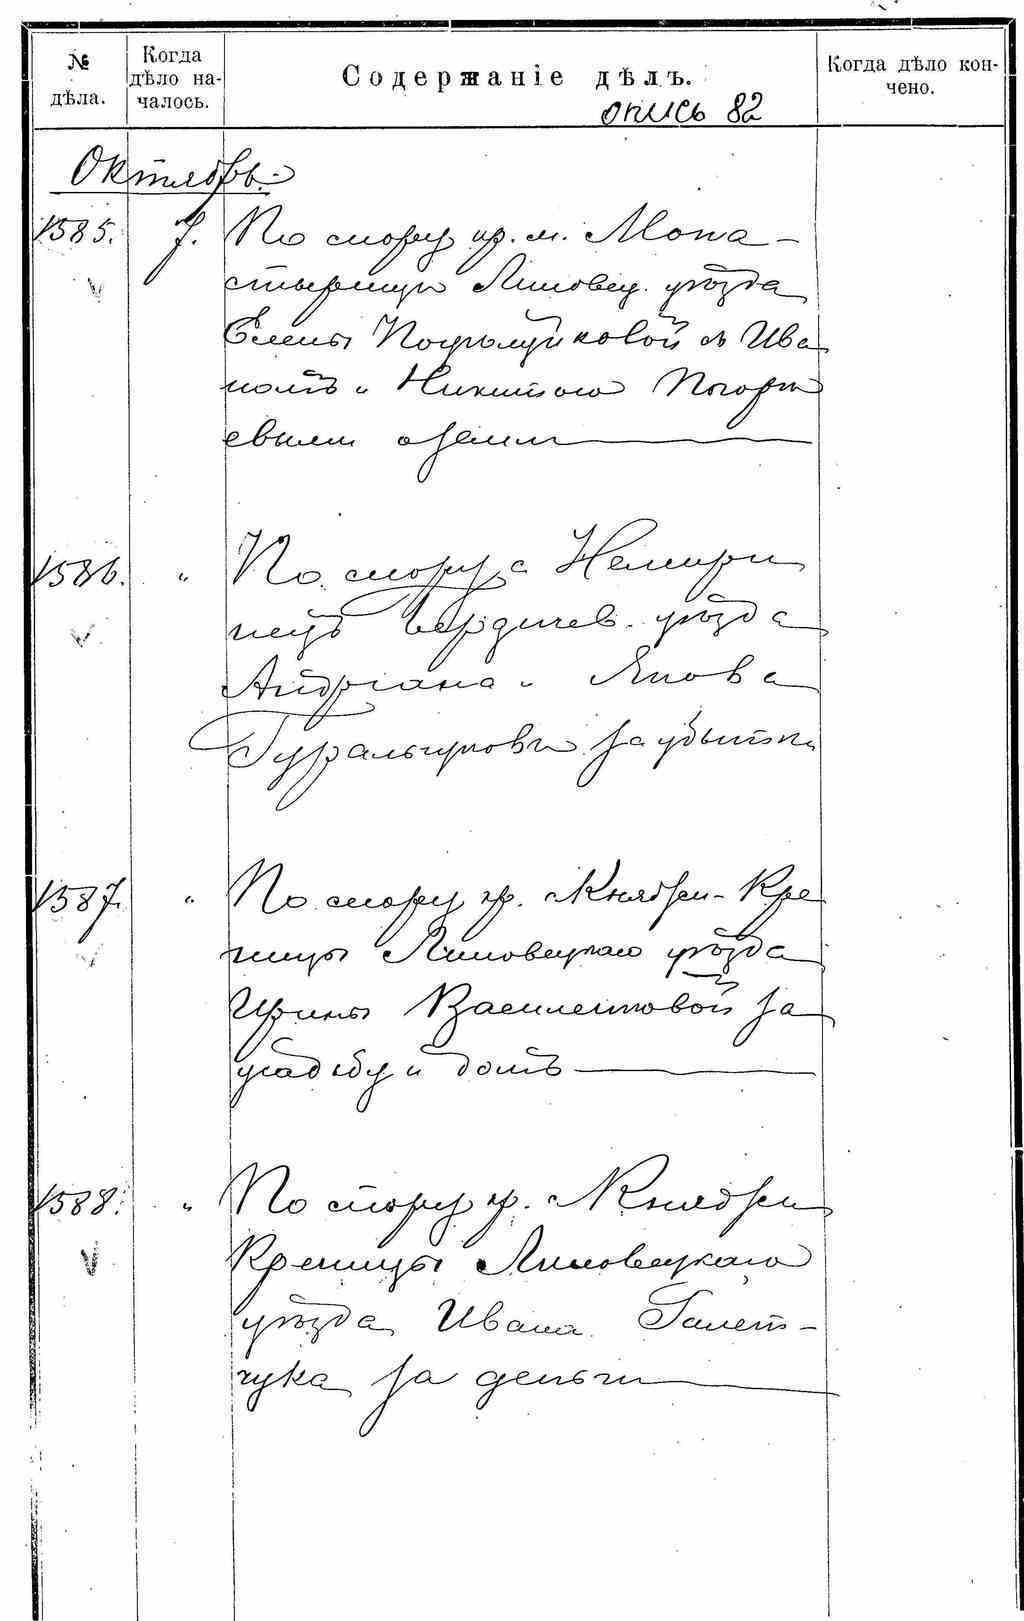 № дѣла.
Когда дѣло на-
чалось.
Содержаніе дѣлъ.
Когда дѣло кон-
чено.
опись 82
Октябрь
1585. 7. По спору кр. м. Мона-
стырищъ Липовец. уѣзда
Елены въ Ива
номъ и Никитою
евыми о земли
1586. " По спору с Немири
нецъ Бердичев. уѣзда
Андріана и Якова
Гуральчуковъ за убытки
1587. " По спору кр. Княжеи-Кре
ницы Липовецкаго уѣзда
Ирины Василенковой за
усадьбу и домъ
1588. " По спору кр. Княжеи
Креницы Липовецкаго
уѣзда Ивана Галет-
чука за деньги